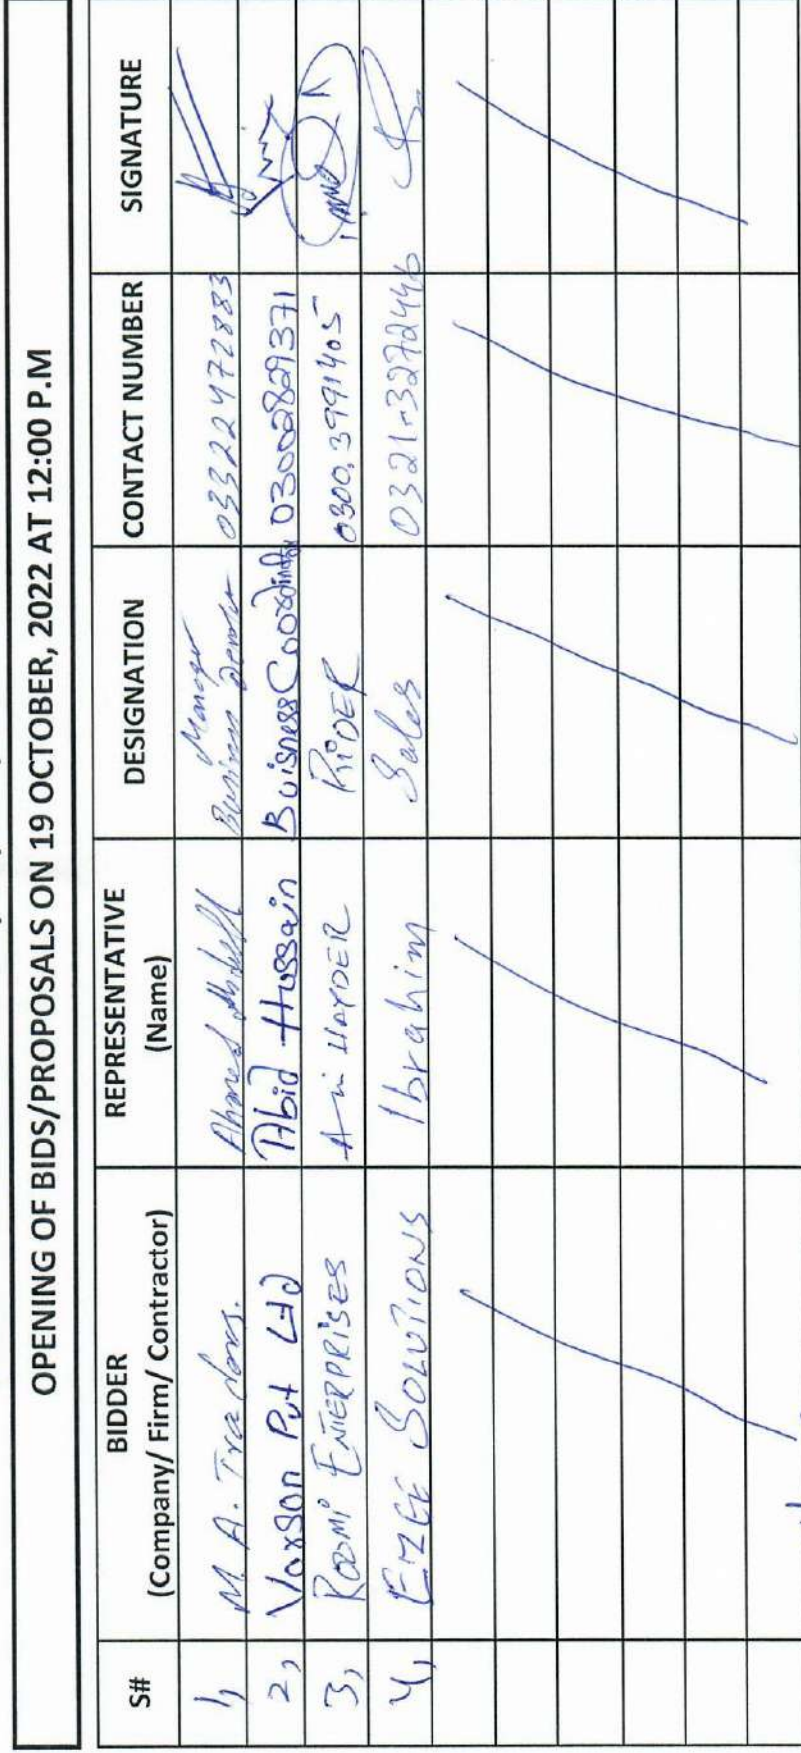 OPENING OF BIDS/PROPOSALS ON 19 OCTOBER, 2022 AT 12:00 P.M
S# BIDDER (Company/ Firm/ Contractor) REPRESENTATIVE (Name) DESIGNATION CONTACT NUMBER SIGNATURE
1, M. A. Traders. Ahmed Manager Business 03322472883
2, Varson Pvt Ltd Abid Hussain Buisness Coordinator 03002829371
3, ROOMI ENTERPRISES HAYDER RIDER 0300.3991405
4, EZEE SOLUTIONS Ibrahim Sales 0321-3272446